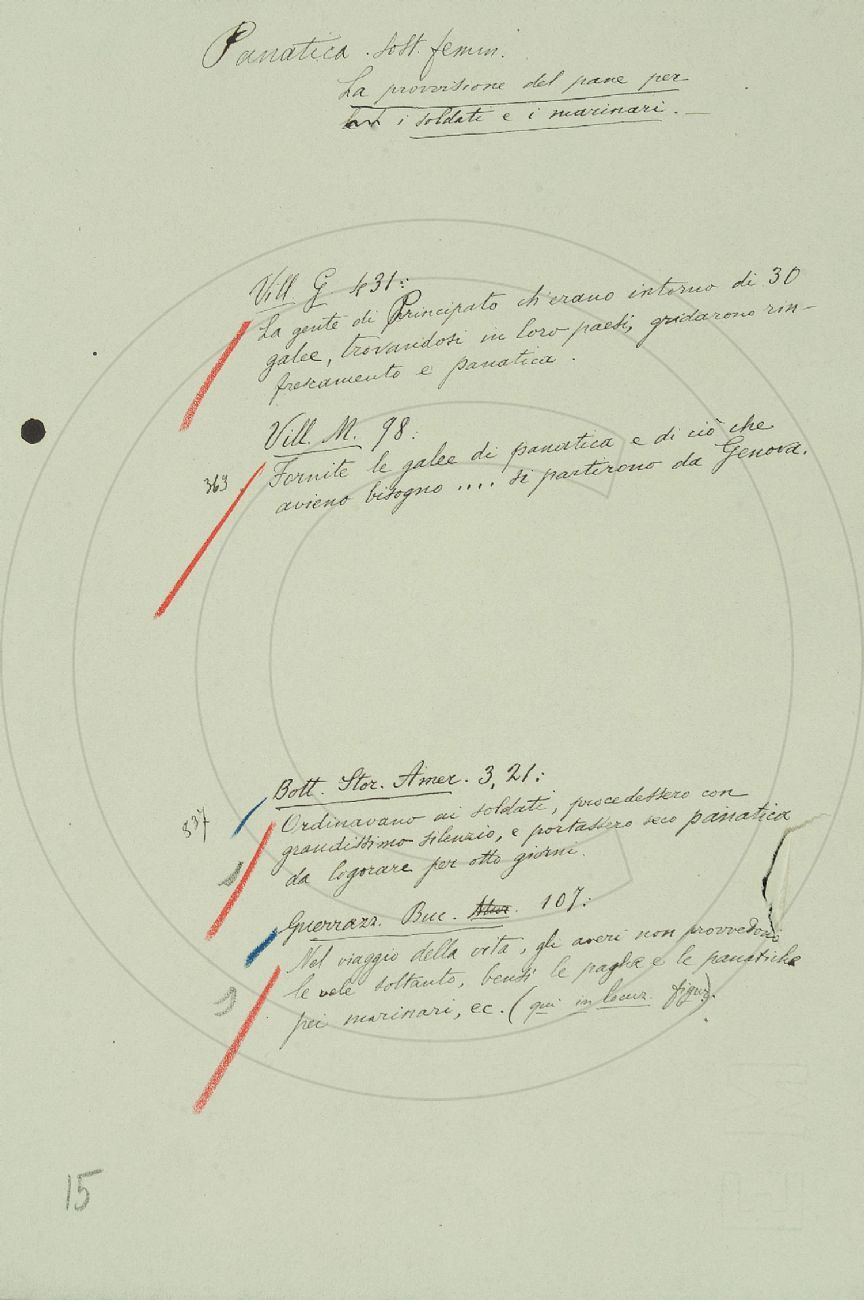 Panatica. sost. femin.
La provvisione del pane per
i soldati e i marinari. —
Vill. G 431:
La gente di Principato ch'erano intorno di 30
galee, trovandosi in loro paesi, gridarono rin-
frescamento e panatica.
Vill. M. 98:
363
Fornite le galee di panatica e di ciò che
avieno bisogno .... si partirono da Genova.
Bott. Stor. Amer. 3, 21:
337
Ordinavano ai soldati, procedessero con
grandissimo silenzio, e portassero seco panatica
da logorare per otto giorni.
Guerrazz. Buc. 107:
Nel viaggio della vita, gli averi non provvedono
le vele soltanto, bensì le paghe e le panatiche
pei marinari, ec. (qui in locuz. figur).
15